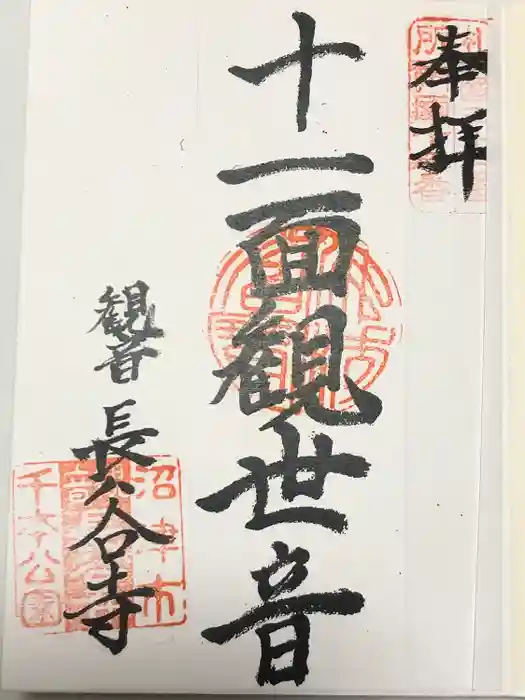 奉拝
十一面観世音
観音
長谷寺
沼津市
千本公園